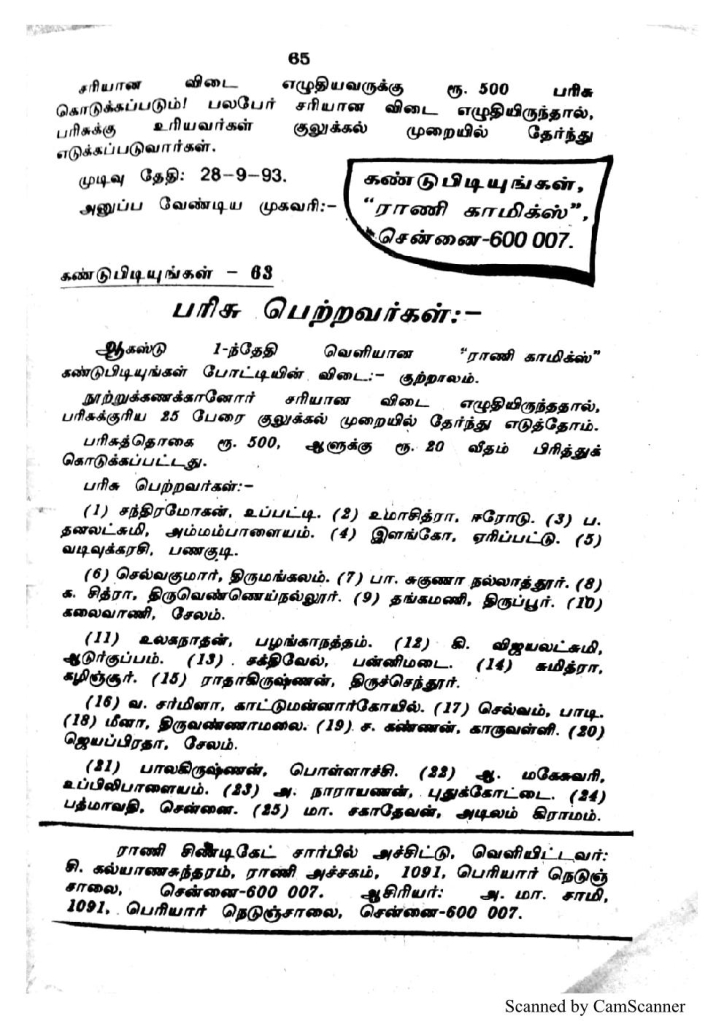 65
சரியான விடை எழுதியவருக்கு ரூ. 500 பரிசு
கொடுக்கப்படும்! பலபேர் சரியான விடை எழுதியிருந்தால்,
பரிசுக்கு உரியவர்கள் குலுக்கல் முறையில் தேர்ந்து
எடுக்கப்படுவார்கள்.
முடிவு தேதி: 28-9-93.
அனுப்ப வேண்டிய முகவரி:-
கண்டுபிடியுங்கள்,
“ராணி காமிக்ஸ்”,
சென்னை-600 007.
கண்டுபிடியுங்கள் - 63
பரிசு பெற்றவர்கள்:-
ஆகஸ்டு 1-ந்தேதி வெளியான “ராணி காமிக்ஸ்”
கண்டுபிடியுங்கள் போட்டியின் விடை:- குற்றாலம்.
நூற்றுக்கணக்கானோர் சரியான விடை எழுதியிருந்ததால்,
பரிசுக்குரிய 25 பேரை குலுக்கல் முறையில் தேர்ந்து எடுத்தோம்.
பரிசுத்தொகை ரூ. 500, ஆளுக்கு ரூ. 20 வீதம் பிரித்துக்
கொடுக்கப்பட்டது.
பரிசு பெற்றவர்கள்:-
(1) சந்திரமோகன், உப்பட்டி. (2) உமாசித்ரா, ஈரோடு. (3) ப.
தனலட்சுமி, அம்மம்பாளையம். (4) இளங்கோ, ஏரிப்பட்டு. (5)
வடிவுக்கரசி, பணகுடி.
(6) செல்வகுமார், திருமங்கலம். (7) பா. சுகுணா நல்லாத்தூர். (8)
க. சித்ரா, திருவெண்ணெய்நல்லூர். (9) தங்கமணி, திருப்பூர். (10)
கலைவாணி, சேலம்.
(11) உலகநாதன், பழங்காநத்தம். (12) கி. விஜயலட்சுமி,
ஆடுர்குப்பம். (13) சக்திவேல், பன்னிமடை. (14) சுமித்ரா,
கழிஞ்சூர். (15) ராதாகிருஷ்ணன், திருச்செந்தூர்.
(16) வ. சர்மிளா, காட்டுமன்னார்கோயில். (17) செல்வம், பாடி.
(18) மீனா, திருவண்ணாமலை. (19) ச. கண்ணன், காருவள்ளி. (20)
ஜெயப்பிரதா, சேலம்.
(21) பாலகிருஷ்ணன், பொள்ளாச்சி. (22) ஆ. மகேசுவரி,
உப்பிலிபாளையம். (23) அ. நாராயணன், புதுக்கோட்டை. (24)
பத்மாவதி, சென்னை. (25) மா. சகாதேவன், அடிலம் கிராமம்.
ராணி சிண்டிகேட் சார்பில் அச்சிட்டு, வெளியிட்டவர்:
சி. கல்யாணசுந்தரம், ராணி அச்சகம், 1091, பெரியார் நெடுஞ்
சாலை, சென்னை-600 007. ஆசிரியர்: அ. மா. சாமி,
1091, பெரியார் நெடுஞ்சாலை, சென்னை-600 007.
Scanned by CamScanner